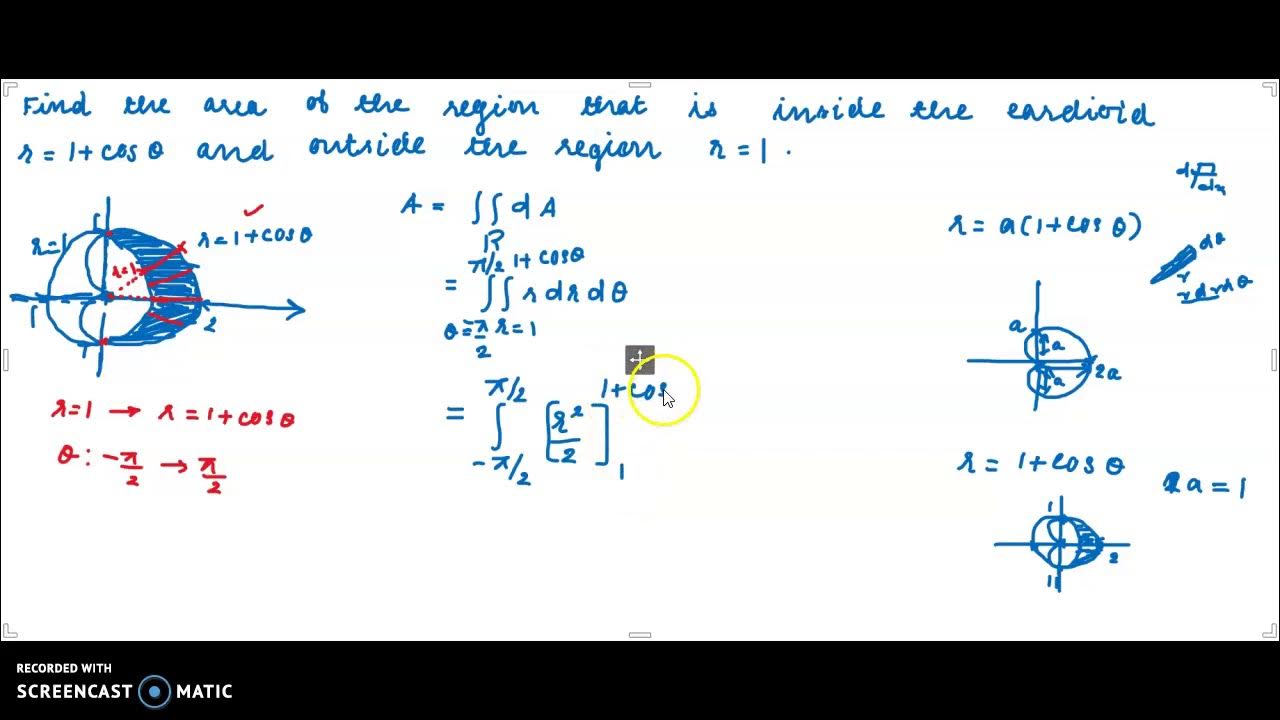 Find the area of the region that is inside the cardioid
r = 1 + cos θ and outside the region r = 1 .
r = 1
r = 1 + cos θ
r = 1
1
1
1
2
r = 1 → r = 1 + cos θ
θ : - π/2 → π/2
A = ∬ dA
R
= ∫∫ r dr dθ
π/2 1 + cos θ
θ = -π/2 r = 1
= ∫ [r²/2]
π/2 1 + cos
-π/2 1
dy
dx
r = a(1 + cos θ)
dθ
r
r dr dθ
a
a
a
2a
r = 1 + cos θ
a = 1
1
2
1
RECORDED WITH
SCREENCAST MATIC